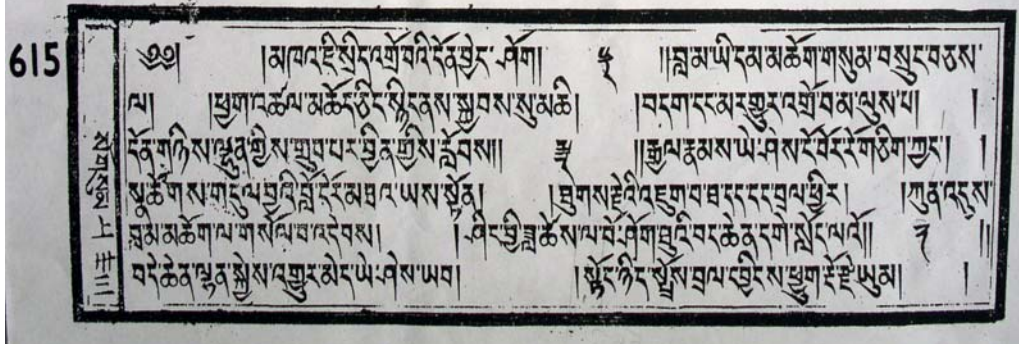 615
༄༅། །མཁའ་ཇི་སྲིད་འགྲོ་བའི་དོན་བྱེད་ཤོག། ༥ །།བླ་མ་ཡི་དམ་མཆོག་གསུམ་བསྲུང་བཅས་
ལ། །ཕྱག་འཚལ་མཆོད་ཅིང་སྙིང་ནས་སྐྱབས་སུ་མཆི། །བདག་དང་མར་གྱུར་འགྲོ་བ་མ་ལུས་པ། །
དོན་གཉིས་ལྷུན་གྱིས་གྲུབ་པར་བྱིན་གྱིས་རློབས།། །།རྒྱལ་རྣམས་ཡེ་ཤེས་ངོ་བོར་རོ་གཅིག་ཀྱང་། །
སྣ་ཚོགས་གདུལ་བྱའི་བློ་ངོར་མཐའ་ཡས་སྟོན། །ཐུགས་རྗེའི་འཇུག་པ་ དང་དང་བྲལ་ཕྱིར། །ཀུན་འདུས་
བླ་མ་མཆོག་ལ་གསོལ་བ་འདེབས། །
བདེ་ཆེན་ལྷན་སྐྱེས་འགྱུར་མེད་ཡེ་ཤེས་ཡབ། །སྟོང་ཉིད་སྤྲོས་བྲལ་དབྱིངས་ཕྱུག་རྡོ་རྗེ་ཡུམ། །